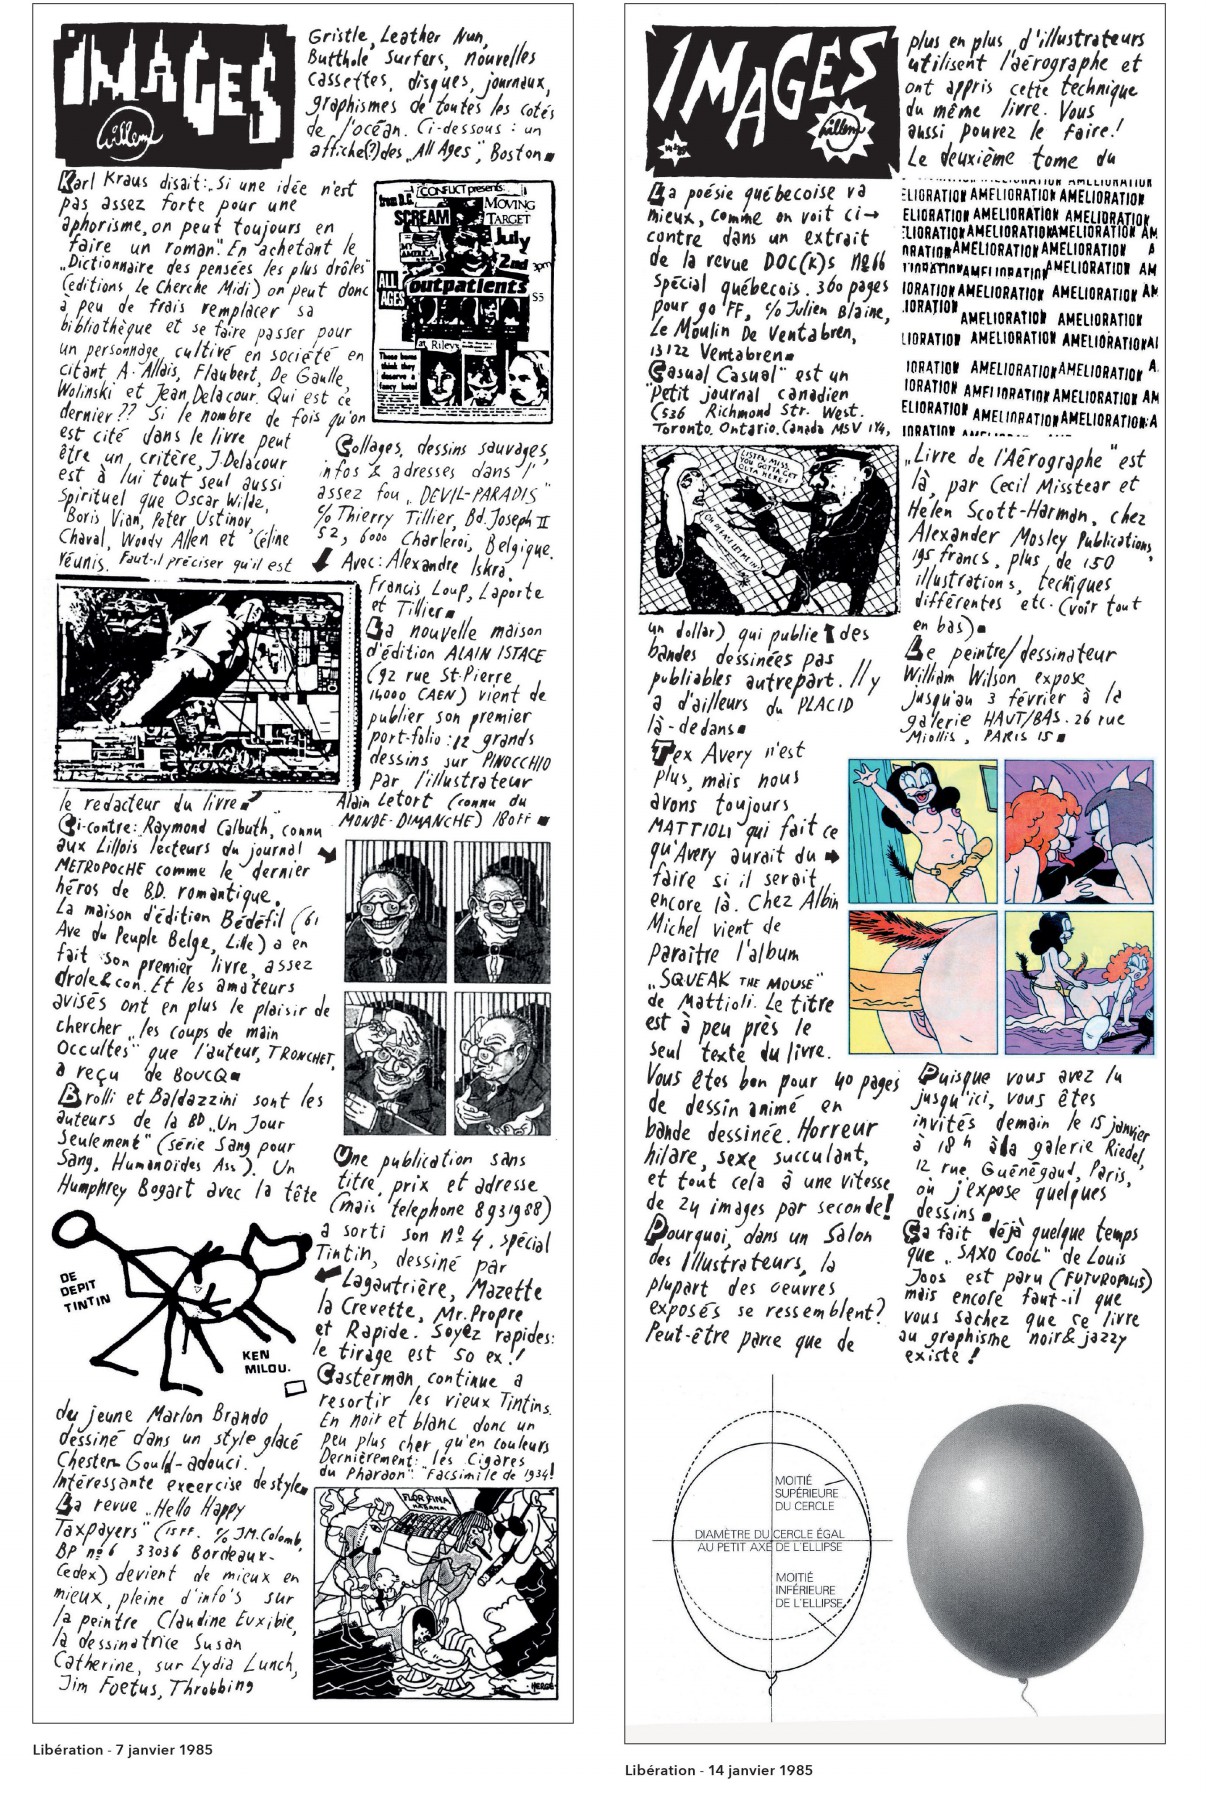 IMAGES
Willem
Karl Kraus disait: „Si une idée n'est
pas assez forte pour une
aphorisme, on peut toujours en
faire un roman." En achetant le
„Dictionnaire des pensées les plus drôles"
(editions Le Cherche Midi) on peut donc
à peu de frais remplacer sa
bibliothèque et se faire passer pour
un personnage cultivé en société en
citant A. Allais, Flaubert, De Gaulle,
Wolinski et Jean Delacour. Qui est ce
dernier?? Si le nombre de fois qu'on
est cité dans le livre peut
être un critère, J. Delacour
est à lui tout seul aussi
spirituel que Oscar Wilde,
Boris Vian, Peter Ustinov,
Chaval, Woody Allen et Céline
réunis. Faut-il préciser qu'il est
le redacteur du livre
Ci-contre: Raymond Calbuth, connu
aux Lillois lecteurs du journal
METROPOCHE comme le dernier
héros de BD. romantique.
La maison d'édition Bédéfil (61
Ave du Peuple Belge, Lille) a en
fait son premier livre, assez
drole & con. Et les amateurs
avisés ont en plus le plaisir de
chercher „les coups de main
Occultes" que l'auteur, TRONCHET,
a reçu de BOUCQ
Brolli et Baldazzini sont les
auteurs de la BD „Un Jour
Seulement" (série Sang pour
Sang, Humanoïdes Ass). Un
Humphrey Bogart avec la tête
DE
DEPIT
TINTIN
KEN
MILOU.
du jeune Marlon Brando
dessiné dans un style glacé
Chester Gould-adouci.
Intéressante exercise de style
La revue „Hello Happy
Taxpayers" (15 FF. c/o JM. Colomb,
BP nº 6 33036 Bordeaux-
Cedex) devient de mieux en
mieux, pleine d'info's sur
la peintre Claudine Euxibie,
la dessinatrice Susan
Catherine, sur Lydia Lunch,
Jim Foetus, Throbbing
Gristle, Leather Nun,
Butthole Surfers, nouvelles
cassettes, disques, journaux,
graphismes de toutes les cotés
de l'océan. Ci-dessous: un
affiche(?) des „All Ages", Boston
CONFLICT presents:
from D.C.
SCREAM
MOVING
TARGET
MY
AMERICA
July
2nd
3pm
ALL
AGES
outpatients
$5
at Riley's
These bozos
think they
deserve a
fancy hotel
Collages, dessins sauvages,
infos & adresses dans l'
assez fou „DEVIL-PARADIS"
c/o Thierry Tillier, Bd. Joseph II
52, 6000 Charleroi, Belgique.
Avec: Alexandre Iskra,
Francis Loup, Laporte
et Tillier
La nouvelle maison
d'édition ALAIN ISTACE
(92 rue St-Pierre
14000 CAEN) vient de
publier son premier
port-folio: 12 grands
dessins sur PINOCCHIO
par l'illustrateur
Alain Letort (connu du
MONDE-DIMANCHE) 180FF
Une publication sans
titre, prix et adresse
(mais telephone 8931988)
a sorti son nº 4, spécial
Tintin, dessiné par
Lagautrière, Mazette
la Crevette, Mr. Propre
et Rapide. Soyez rapides:
le tirage est 50 ex.!
Casterman continue a
resortir les vieux Tintins.
En noir et blanc donc un
peu plus cher qu'en couleurs
Dernièrement: les Cigares
du Pharaon" "Facsimile de 1934!
FLOR FINA
HABANA
HERGÉ
Libération - 7 janvier 1985
IMAGES
Willem
La poésie québecoise va
mieux, comme on voit ci→
contre dans un extrait
de la revue DOC(K)S Nº66
Spécial québecois. 360 pages
pour 90 FF, c/o Julien Blaine,
Le Moulin De Ventabren,
13122 Ventabren
"Casual Casual" est un
Petit journal canadien
(536 Richmond Str. West.
Toronto. Ontario. Canada M5V 1Y4,
LISTEN MISS,
YOU GOTTA GET
OUTA HERE!
un dollar) qui publie des
bandes dessinées pas
publiables autrepart. Il y
a d'ailleurs du PLACID
là-dedans
Tex Avery n'est
plus, mais nous
avons toujours
MATTIOLI qui fait ce
qu'Avery aurait du
faire si il serait
encore là. Chez Albin
Michel vient de
paraître l'album
„SQUEAK THE MOUSE"
de Mattioli. Le titre
est à peu près le
seul texte du livre.
Vous êtes bon pour 40 pages
de dessin animé en
bande dessinée. Horreur
hilare, sexe succulant,
et tout cela à une vitesse
de 24 images par seconde!
Pourquoi, dans un Salon
des Illustrateurs, la
plupart des oeuvres
exposés se ressemblent?
Peut-être parce que de
plus en plus d'illustrateurs
utilisent l'aérographe et
ont appris cette technique
du même livre. Vous
aussi pouvez le faire!
Le deuxième tome du
ELIORATION AMELIORATION AMELIORATION
ELIORATION AMELIORATION AMELIORATION
ELIORATION AMELIORATION AMELIORATION AM
ORATION AMELIORATION AMELIORATION A
IORATION AMELIORATION AMELIORATION AM
IORATION AMELIORATION AMELIORATION AM
IORATION
AMELIORATION AMELIORATION
LIORATION AMELIORATION AMELIORATION AI
IORATION AMELIORATION AMELIORATION A
IORATION AMELIORATION AMELIORATION AM
ELIORATION AMELIORATION AMELIORATION A
IORATION AMELIORATION
„Livre de l'Aérographe" est
là, par Cecil Misstear et
Helen Scott-Harman, chez
Alexander Mosley Publications,
195 francs, plus de 150
illustrations, techiques
différentes etc. (voir tout
en bas)
Le peintre/dessinateur
William Wilson expose
jusqu'au 3 février à la
galerie HAUT/BAS. 26 rue
Miollis, PARIS 15
Puisque vous avez lu
jusqu'ici, vous êtes
invités demain le 15 janvier
à 18 h à la galerie Riedel,
12 rue Guénégaud, Paris,
où j'expose quelques
dessins
Ça fait déjà quelque temps
que „SAXO COOL" de Louis
Joos est paru (FUTUROPOLIS)
mais encore faut-il que
vous sachez que ce livre
au graphisme noir & jazzy
existe!
MOITIÉ
SUPÉRIEURE
DU CERCLE
DIAMÈTRE DU CERCLE ÉGAL
AU PETIT AXE DE L'ELLIPSE
MOITIÉ
INFÉRIEURE
DE L'ELLIPSE
Libération - 14 janvier 1985